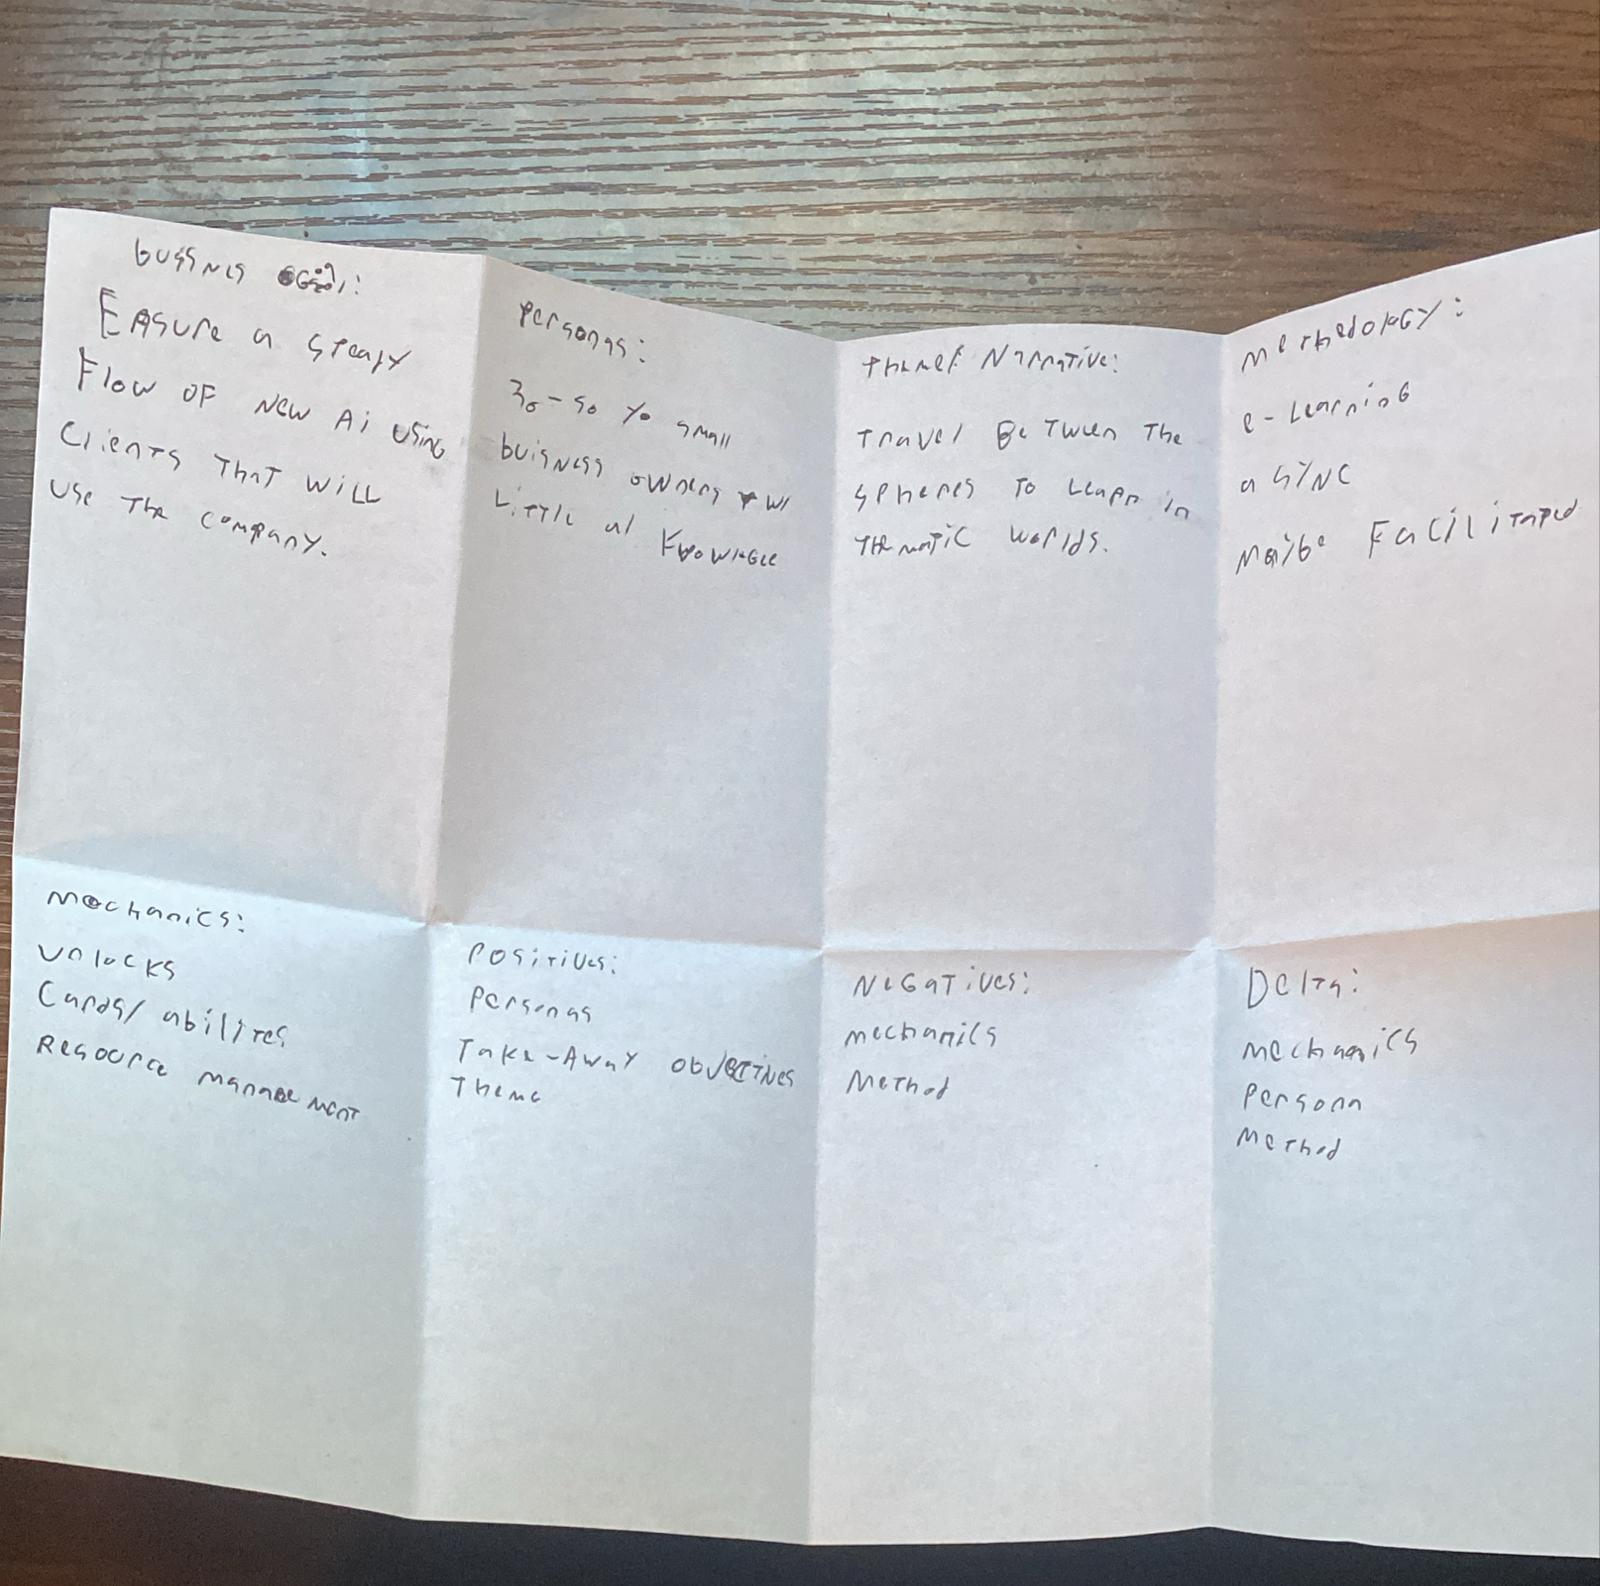 bussnes Goal:
Ensure a steady
Flow OF New Ai using
Clients That will
use The company.
Personas:
30-50 yo small
buisness owners w/
Little ai Knowledge
Theme & Narrative:
Travel Between The
spheres To Learn in
Thematic worlds.
Methodology:
e-Learning
async
Maybe Facilitated
Mechanics:
unlocks
Cards/abilites
Resource management
Positives:
Personas
Take-Away objectives
Theme
Negatives:
mechanics
Method
Delta:
mechanics
Persona
Method